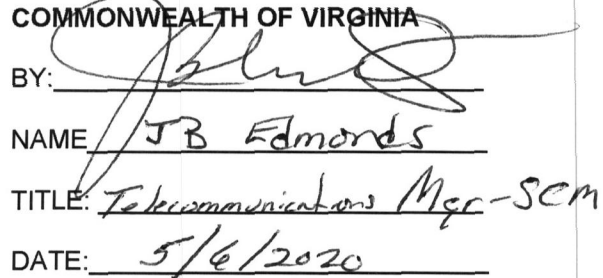 COMMONWEALTH OF VIRGINIA
BY:
NAME JB Edmonds
TITLE: Telecommunications Mgr-SCM
DATE: 5/6/2020